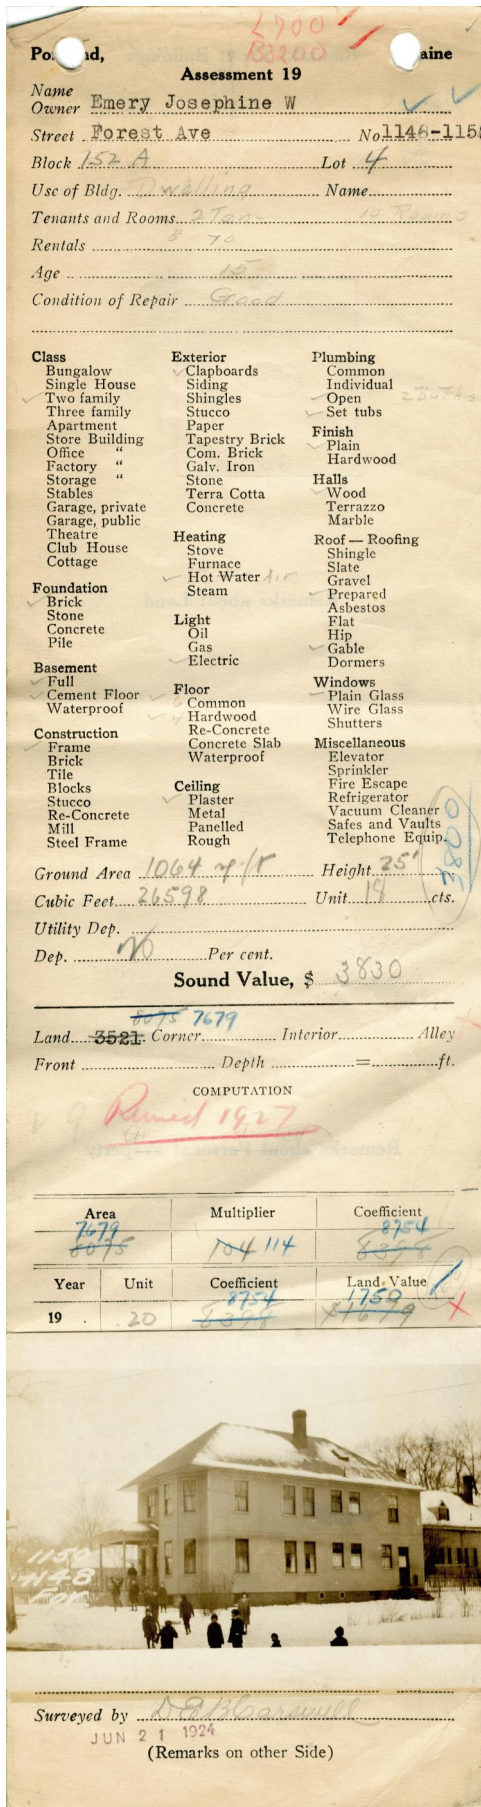 L700
B3200
Portland, Maine
Assessment 19
Name
Owner Emery Josephine W
Street Forest Ave No 1148-115
Block 152 A Lot 4
Use of Bldg. Dwelling Name
Tenants and Rooms 2 Ten- 10 Rooms
Rentals 8 70
Age 15
Condition of Repair Good
Class
Bungalow
Single House
Two family
Three family
Apartment
Store Building
Office "
Factory "
Storage "
Stables
Garage, private
Garage, public
Theatre
Club House
Cottage
Foundation
Brick
Stone
Concrete
Pile
Basement
Full
Cement Floor
Waterproof
Construction
Frame
Brick
Tile
Blocks
Stucco
Re-Concrete
Mill
Steel Frame
Exterior
Clapboards
Siding
Shingles
Stucco
Paper
Tapestry Brick
Com. Brick
Galv. Iron
Stone
Terra Cotta
Concrete
Heating
Stove
Furnace
Hot Water Air
Steam
Light
Oil
Gas
Electric
Floor
Common
Hardwood
Re-Concrete
Concrete Slab
Waterproof
Ceiling
Plaster
Metal
Panelled
Rough
Plumbing
Common
Individual
Open 2 Baths
Set tubs
Finish
Plain
Hardwood
Halls
Wood
Terrazzo
Marble
Roof — Roofing
Shingle
Slate
Gravel
Prepared
Asbestos
Flat
Hip
Gable
Dormers
Windows
Plain Glass
Wire Glass
Shutters
Miscellaneous
Elevator
Sprinkler
Fire Escape
Refrigerator
Vacuum Cleaner
Safes and Vaults
Telephone Equip.
3800
Ground Area 1064 sq ft Height 25'
Cubic Feet 26598 Unit 18 cts.
Utility Dep.
Dep. No Per cent.
Sound Value, $ 3830
8075 7679
Land 3521 Corner Interior Alley
Front Depth = ft.
COMPUTATION
Revised 1927
Area Multiplier Coefficient
7679 8754
8075 104 114 8398
Year Unit Coefficient Land Value
8754 1750
19 20 8398 1679
1150
1148
For
Surveyed by D E B Carswell
JUN 21 1924
(Remarks on other Side)